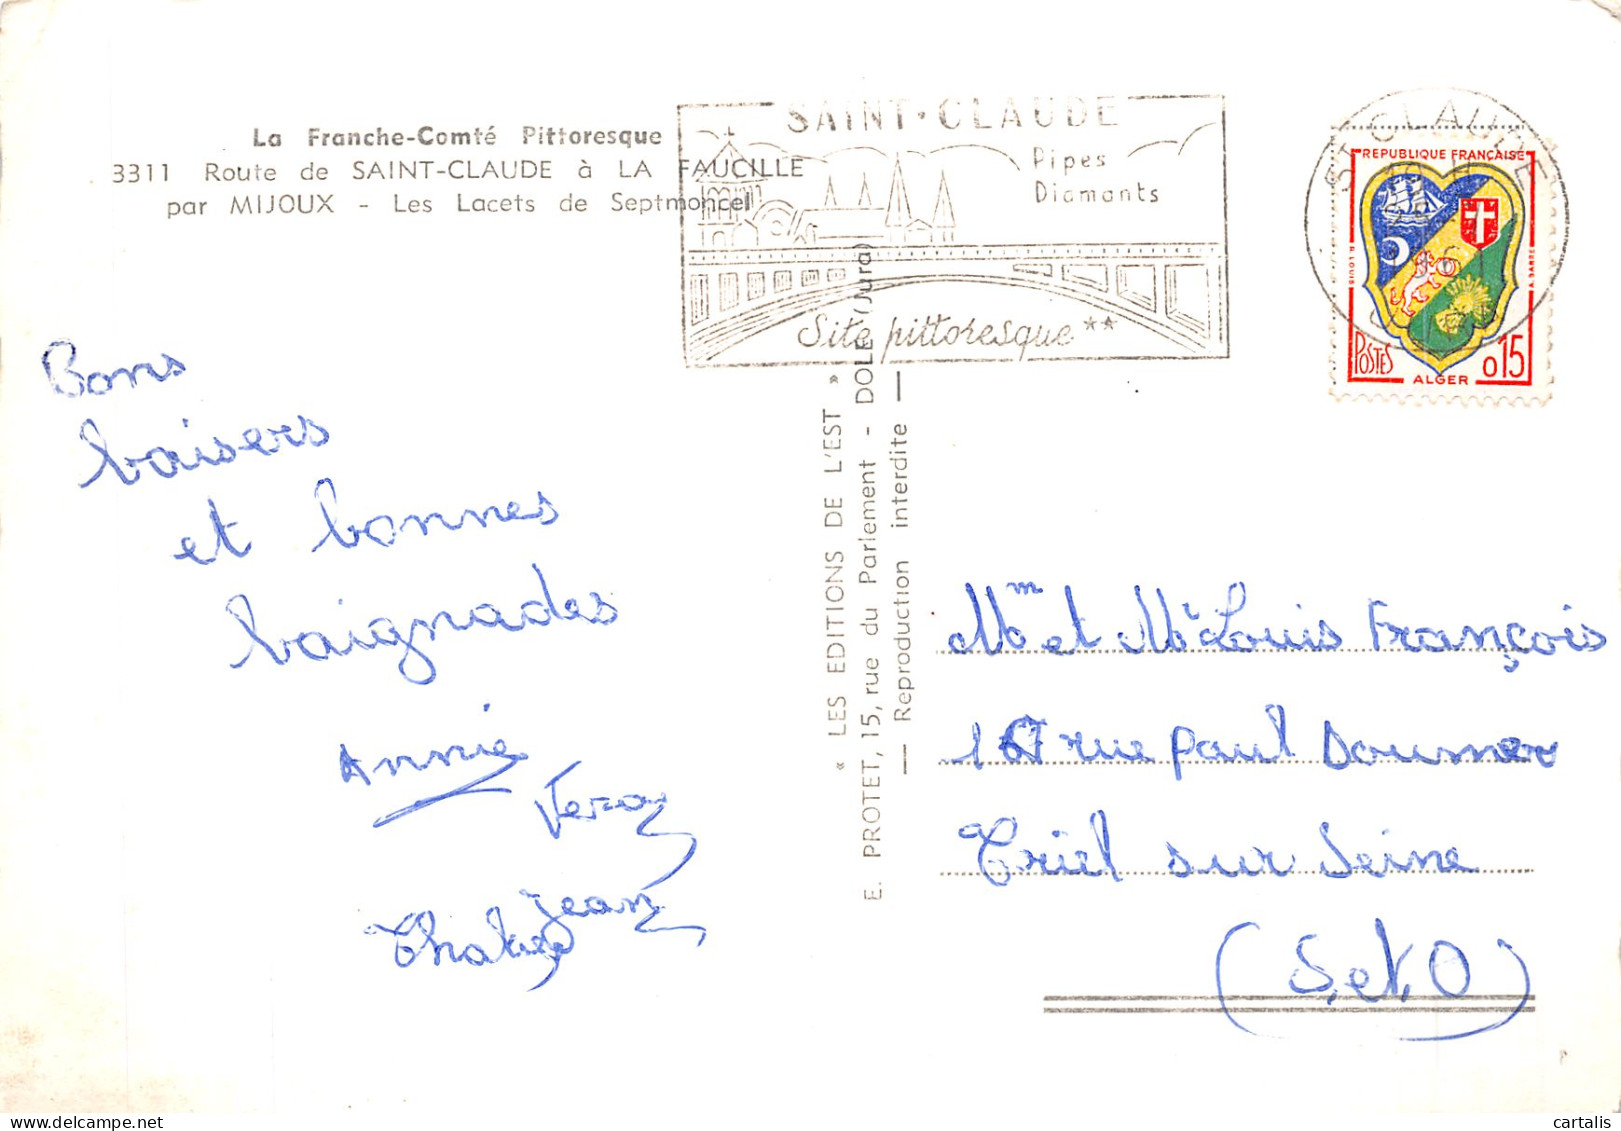 La Franche-Comté Pittoresque
3311 Route de SAINT-CLAUDE à LA FAUCILLE
par MIJOUX - Les Lacets de Septmoncel
SAINT-CLAUDE
Pipes
Diamants
Site pittoresque **
ST CLAUDE
REPUBLIQUE FRANÇAISE
POSTES
0,15
ALGER
Bons
baisers
et bonnes
baignades
Annie
Jean
« LES EDITIONS DE L'EST »
E. PROTET, 15, rue du Parlement - DOLE (Jura)
— Reproduction interdite —
Mm et Mr Louis François
rue Paul Doumer
Triel sur Seine
(S.et.O)
cartalis